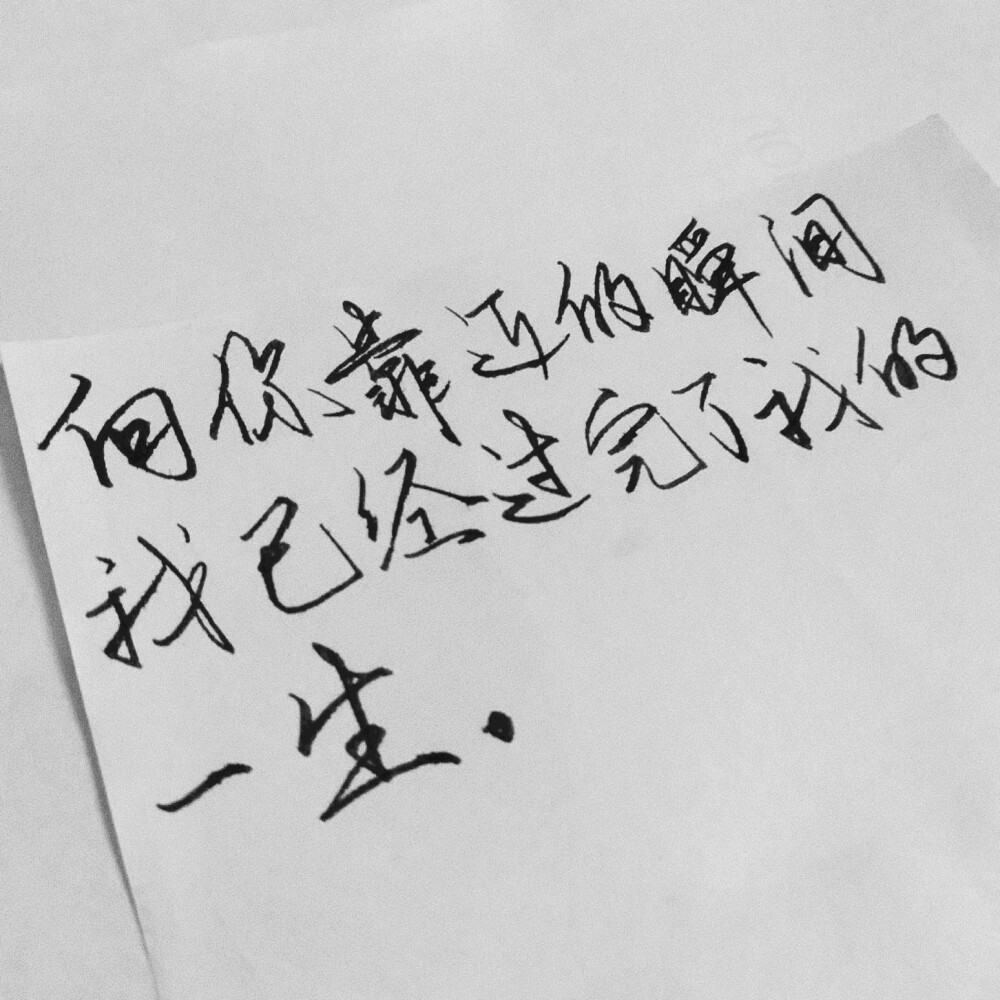 向你靠近的瞬间
我已经过完了我的
一生.